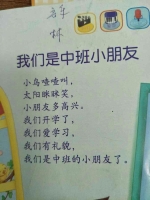 我们是中班小朋友
小鸟喳喳叫，
太阳眯眯笑，
小朋友多高兴，
我们升学了，
我们爱学习，
我们有礼貌，
我们是中班的小朋友了。